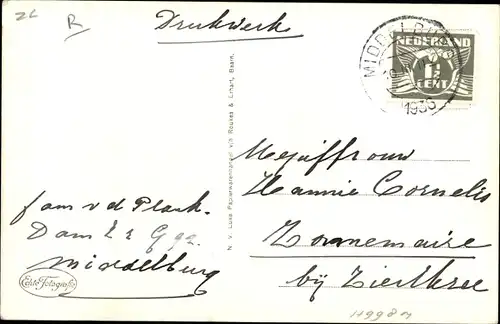 26
R
Drukwerk
MIDDELBURG
1936
NEDERLAND
1½
CENT
N.V. Luxe Papierwarenhandel v/h Roukes & Erhart, Baarn.
Mejuffrouw
Hannie Cornelis
Zonnemaire
bij Zierikzee
fam v d Plank.
Dam
Middelburg
Echte Fotografie
H998